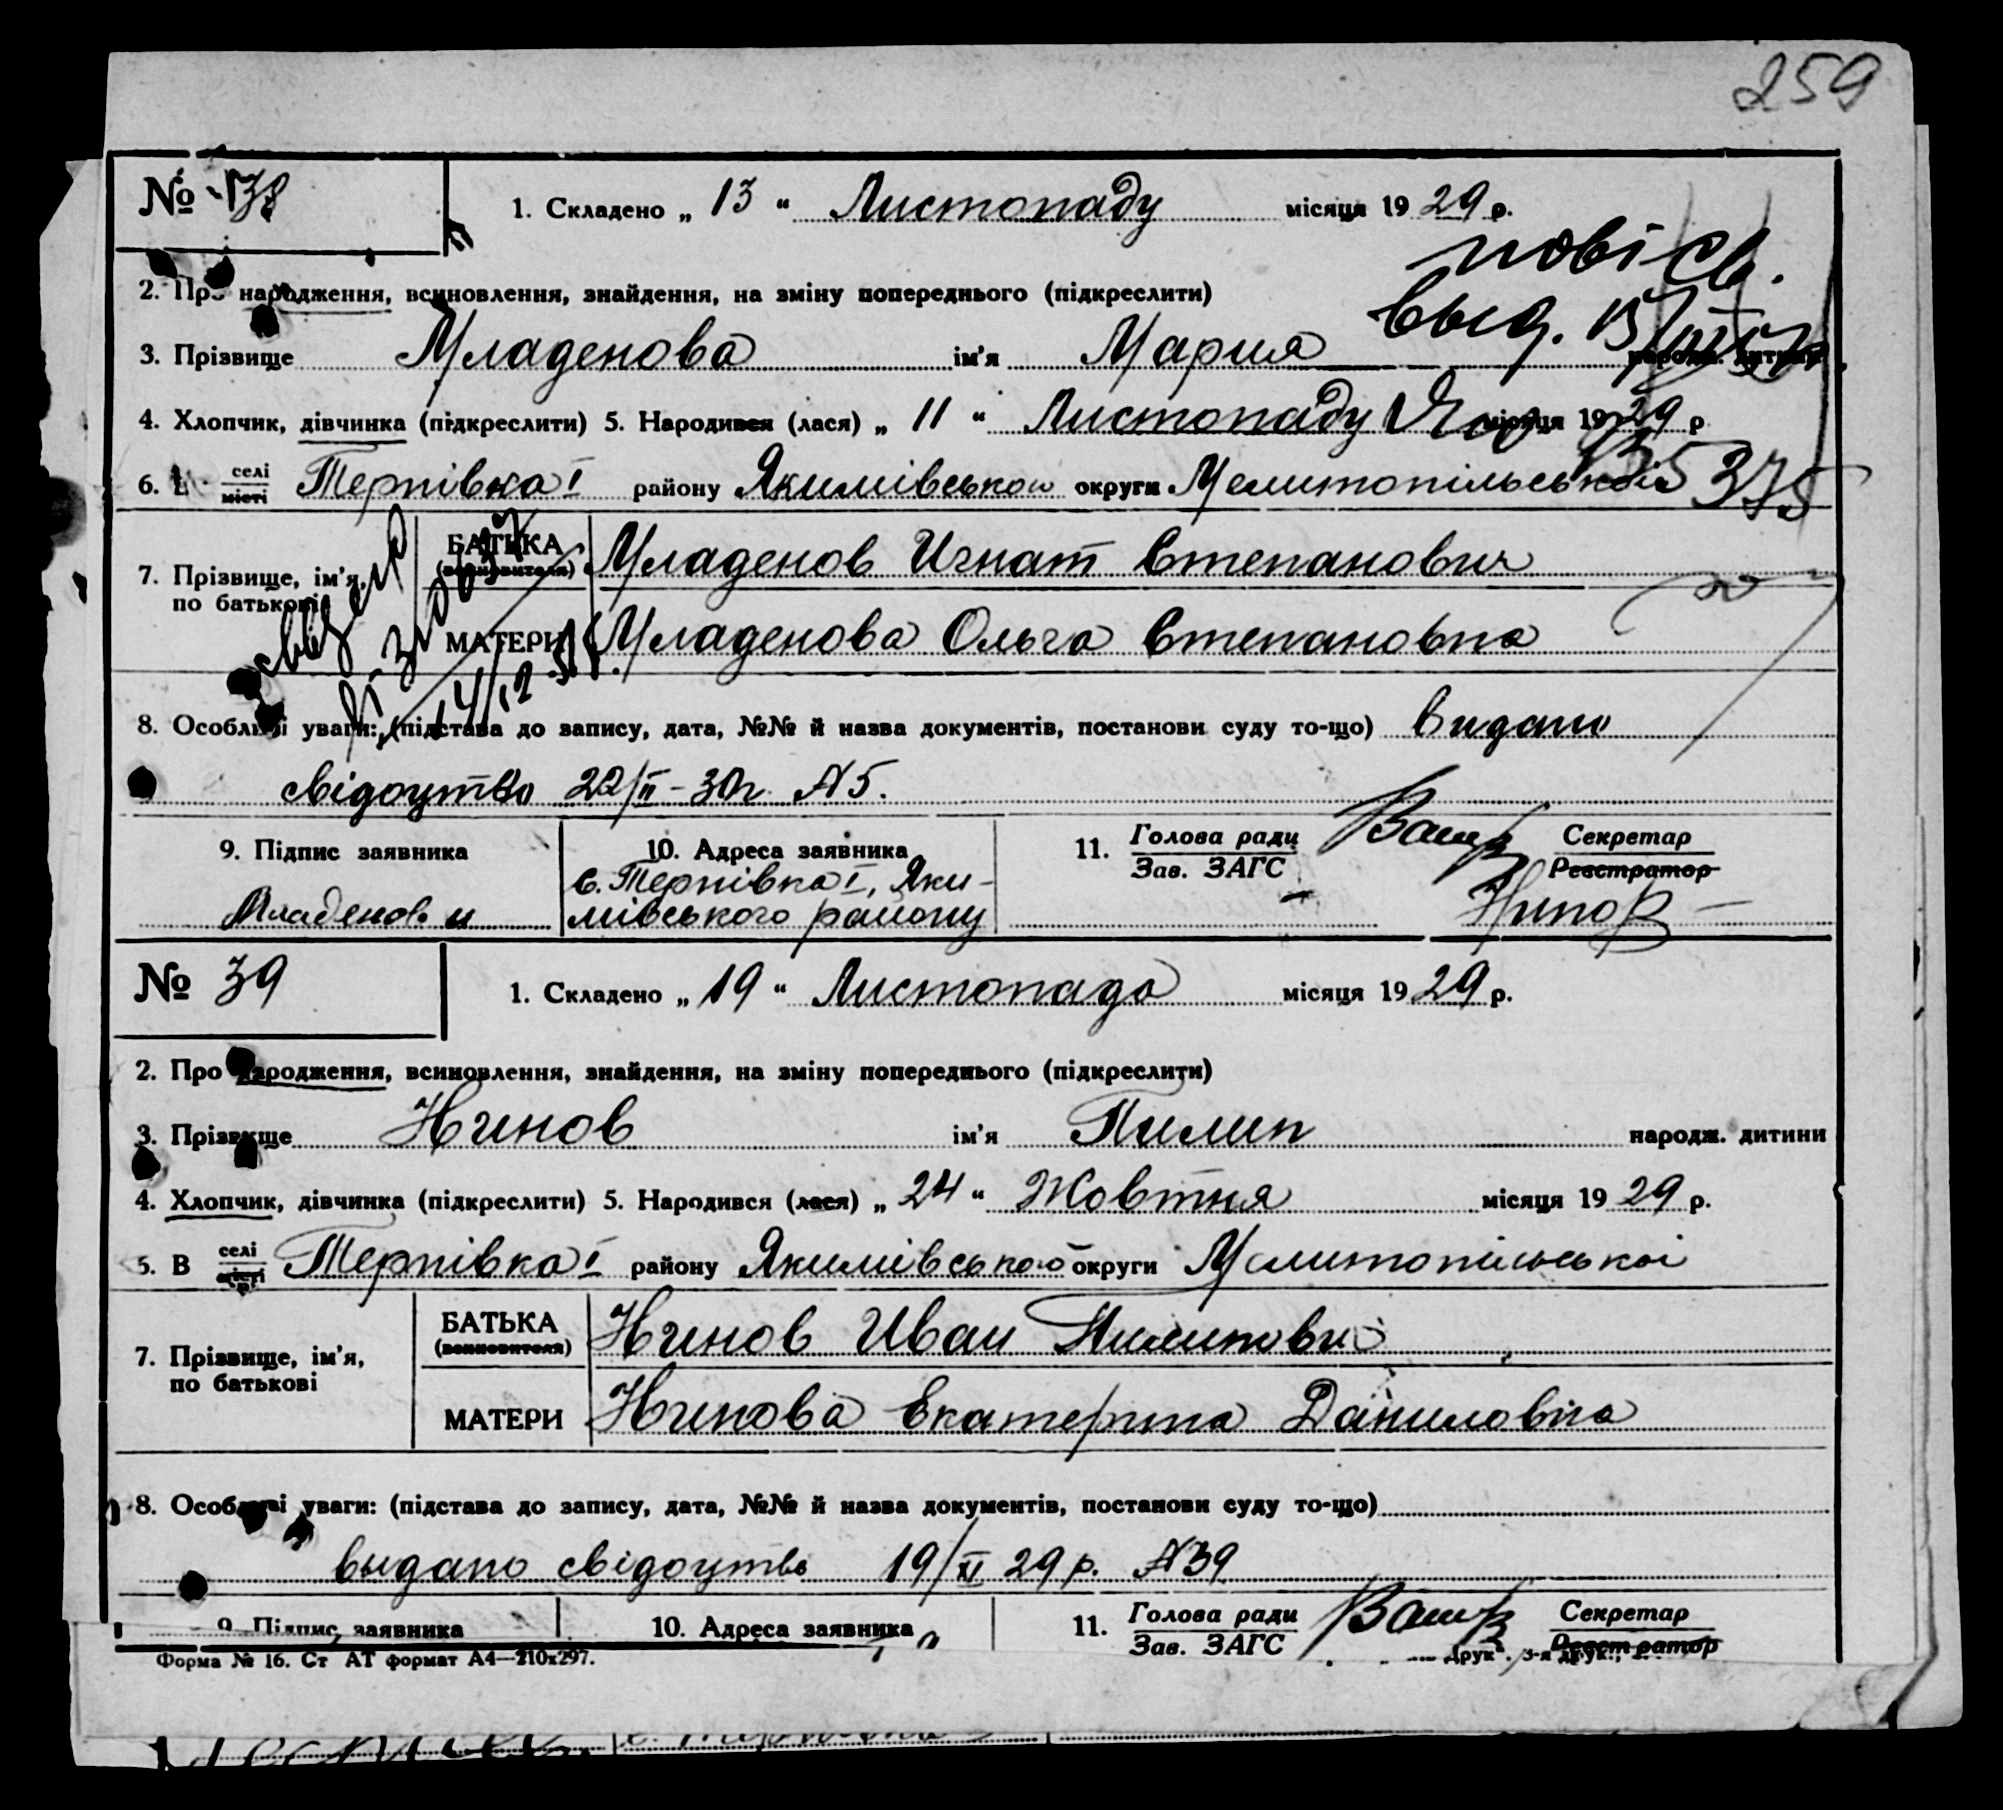 259
№ 38
1. Складено „ 13 “ Листопаду місяця 19 29 р.
2. Про народження, всиновлення, знайдення, на зміну попереднього (підкреслити)
3. Прізвище Младенова ім'я Мария народж. дитини
4. Хлопчик, дівчинка (підкреслити) 5. Народився (лася) „ 11 “ Листопаду місяця 19 29 р
6. В селі місті Терпівка I району Якимівської округи Мелитопільської
375
7. Прізвище, ім'я, по батькові
БАТЬКА (всиновителя) Младенов Игнат Степанович
МАТЕРИ Младенова Ольга Степановна
14/12
8. Особливі уваги: (підстава до запису, дата, №№ й назва документів, постанови суду то-що) Видано
свідоцтво 22/II-30р N5.
9. Підпис заявника
Младенов и
10. Адреса заявника
с. Терпівка I, Яки-
мівського району
11. Голова ради Зав. ЗАГС
Секретар Реєстратор
№ 39
1. Складено „ 19 “ Листопада місяця 19 29 р.
2. Про народження, всиновлення, знайдення, на зміну попереднього (підкреслити)
3. Прізвище Нчинов ім'я Пилип народж. дитини
4. Хлопчик, дівчинка (підкреслити) 5. Народився (лася) „ 24 “ Жовтня місяця 19 29 р.
5. В селі місті Терпівка I району Якимівської округи Мелитопільської
7. Прізвище, ім'я, по батькові
БАТЬКА (всиновителя) Нчинов Иван Пилипович
МАТЕРИ Нчинова Екатерина Даниловна
8. Особливі уваги: (підстава до запису, дата, №№ й назва документів, постанови суду то-що)
выдано свідоцтво 19/XI 29 р. N39
9. Підпис заявника
10. Адреса заявника
11. Голова ради Зав. ЗАГС
Секретар Реєстратор
Форма № 16. Ст АТ формат А4—210х297.